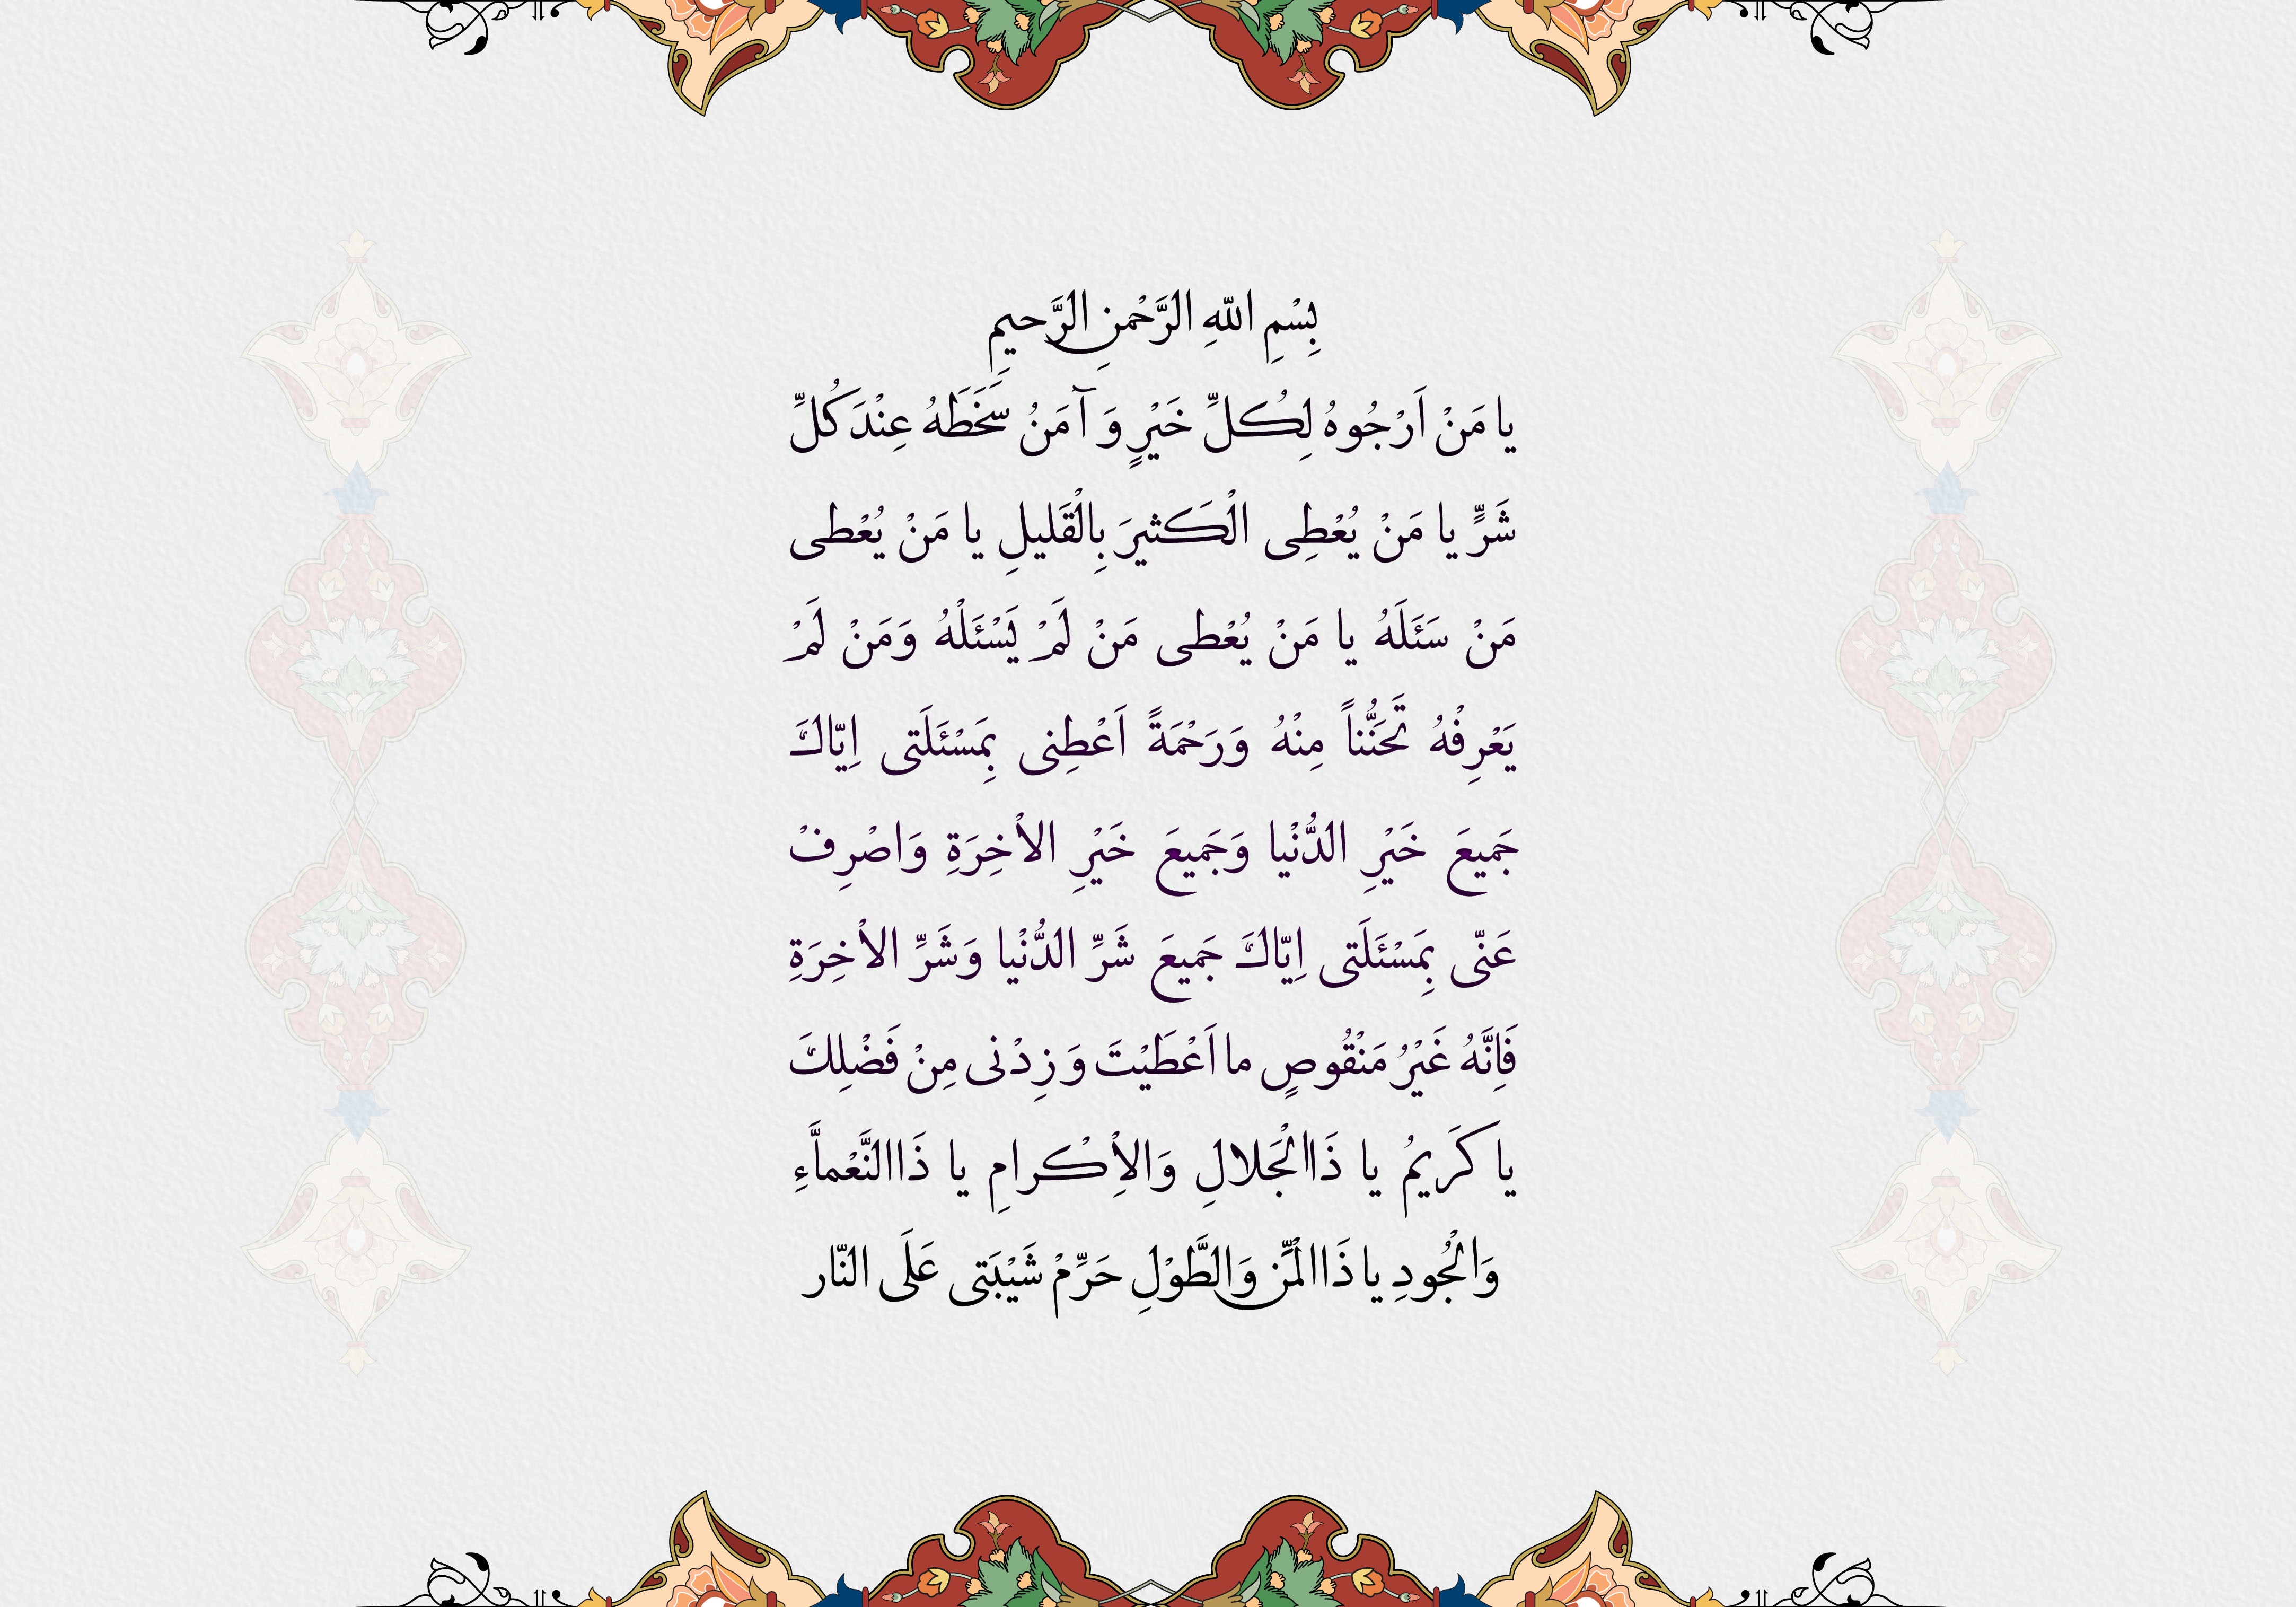 بِسْمِ اللهِ الرَّحْمنِ الرَّحیمِ
یا مَنْ اَرْجُوهُ لِكُلِّ خَیْرٍ وَ آمَنُ سَخَطَهُ عِنْدَ كُلِّ
شَرٍّ یا مَنْ یُعْطِی الْكَثیرَ بِالْقَلیلِ یا مَنْ یُعْطی
مَنْ سَئَلَهُ یا مَنْ یُعْطی مَنْ لَمْ یَسْئَلْهُ وَمَنْ لَمْ
یَعْرِفْهُ تَحَنُّناً مِنْهُ وَرَحْمَةً اَعْطِنی بِمَسْئَلَتی اِیّاكَ
جَمیعَ خَیْرِ الدُّنْیا وَجَمیعَ خَیْرِ الاْخِرَةِ وَاصْرِفْ
عَنّی بِمَسْئَلَتی اِیّاكَ جَمیعَ شَرِّ الدُّنْیا وَشَرِّ الاْخِرَةِ
فَاِنَّهُ غَیْرُ مَنْقُوصٍ ما اَعْطَیْتَ وَ زِدْنی مِنْ فَضْلِكَ
یا كَریمُ یا ذَاالْجَلالِ وَالاِْكْرامِ یا ذَاالنَّعْماَّءِ
وَالْجُودِ یا ذَاالْمَنِّ وَالطَّوْلِ حَرِّمْ شَیْبَتی عَلَی النّار